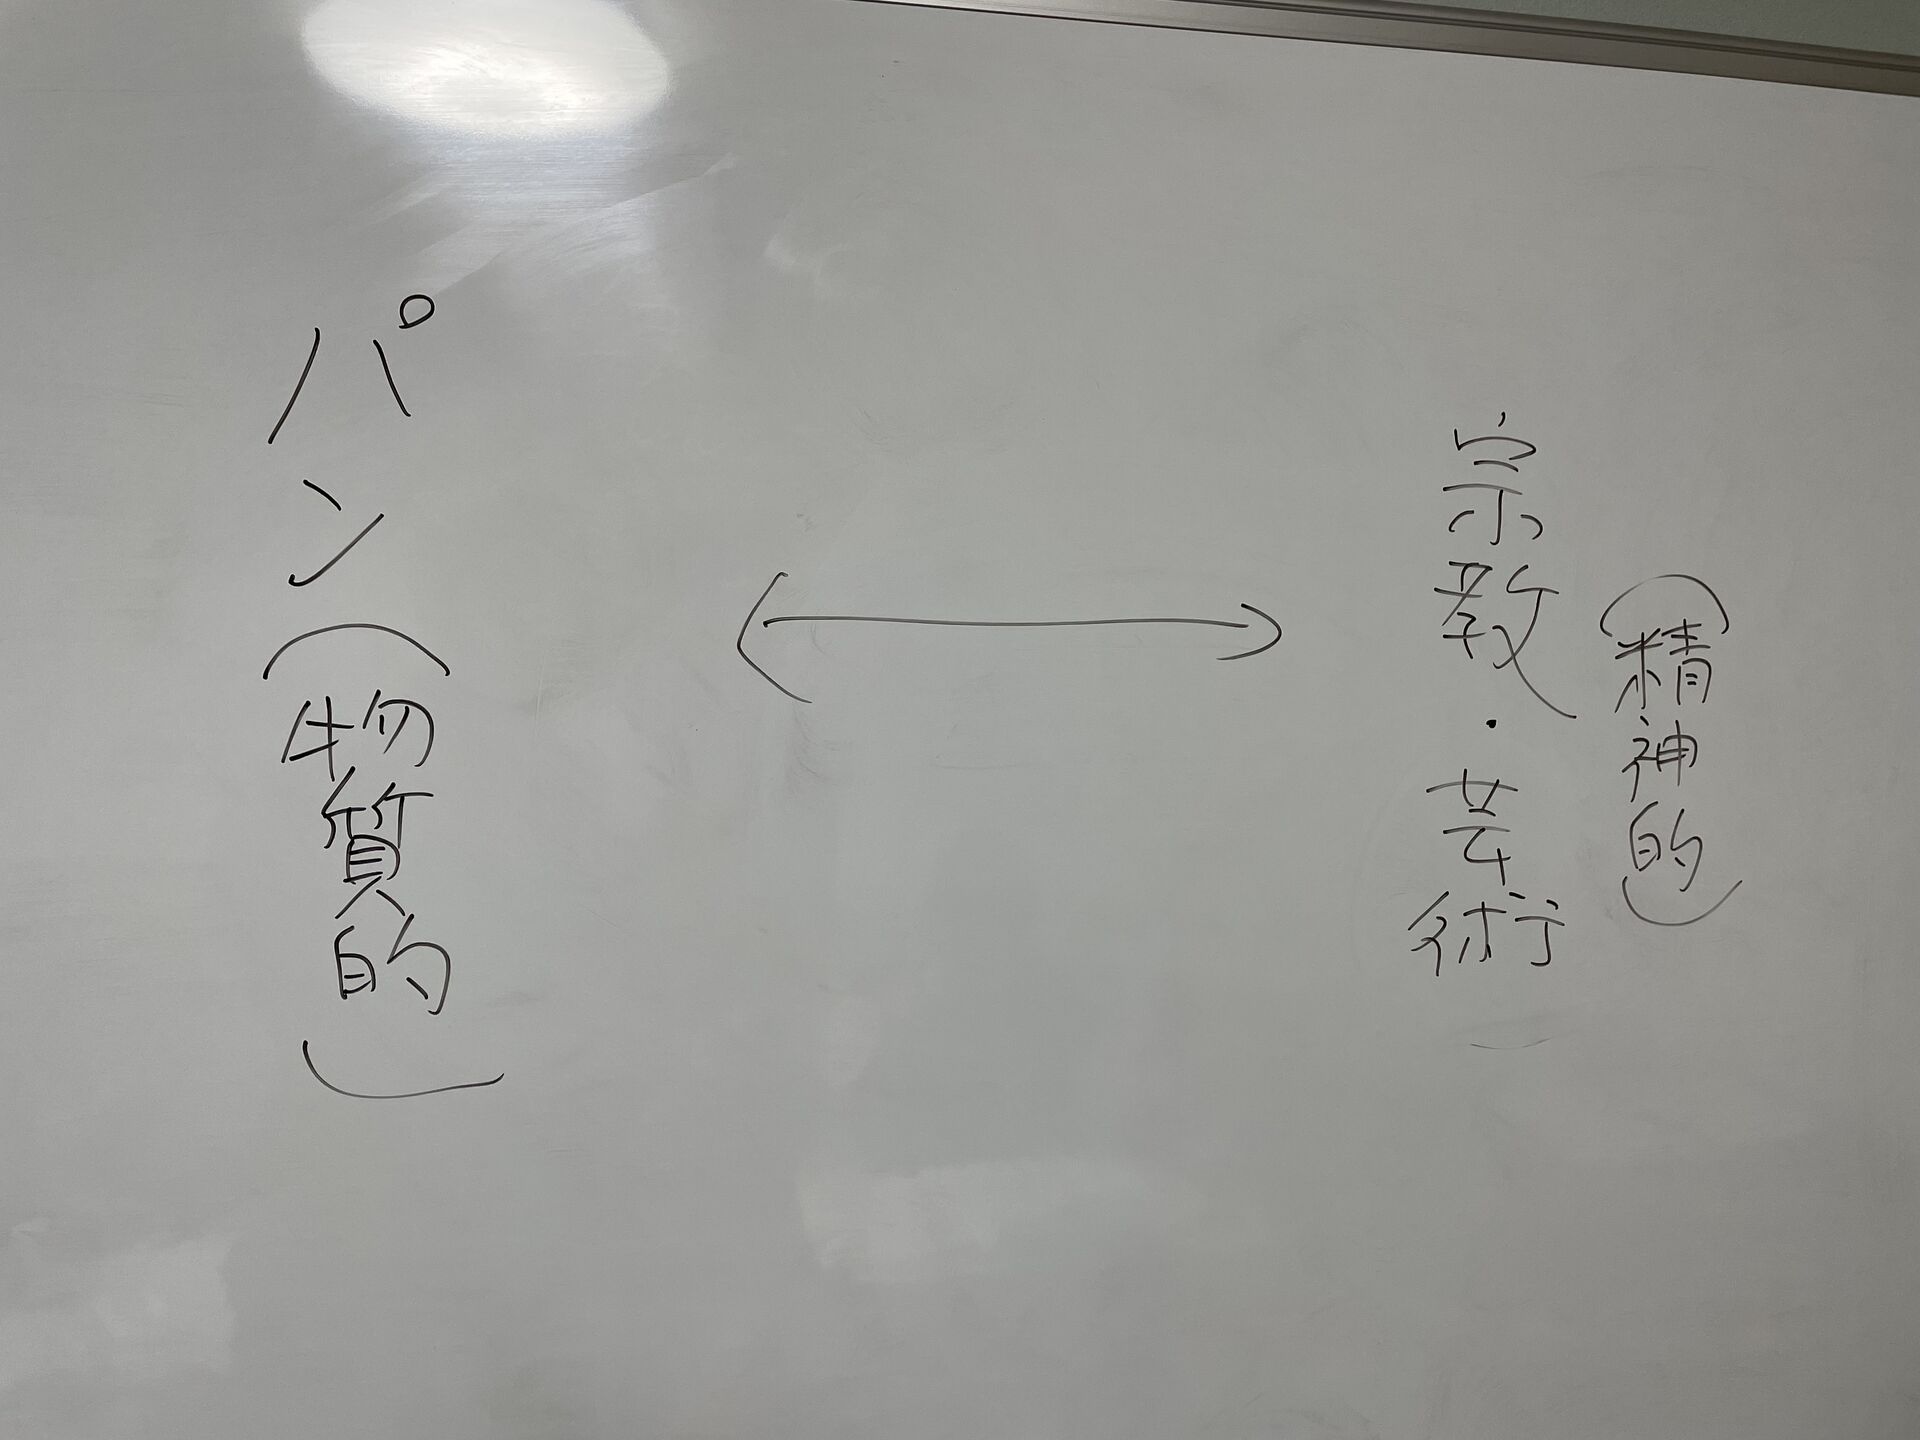 （精神的）
宗教・芸術
パン（物質的）